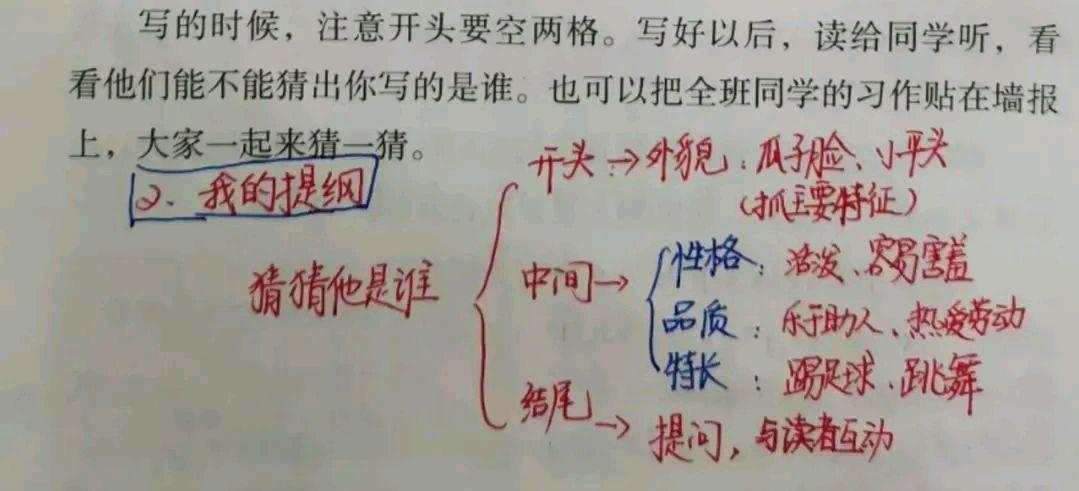 写的时候，注意开头要空两格。写好以后，读给同学听，看
看他们能不能猜出你写的是谁。也可以把全班同学的习作贴在墙报
上，大家一起来猜一猜。
2. 我的提纲
猜猜他是谁
开头：→外貌：瓜子脸、小平头
（抓主要特征）
中间→
性格：活泼、容易害羞
品质：乐于助人、热爱劳动
特长：踢足球、跳舞
结尾→提问，与读者互动